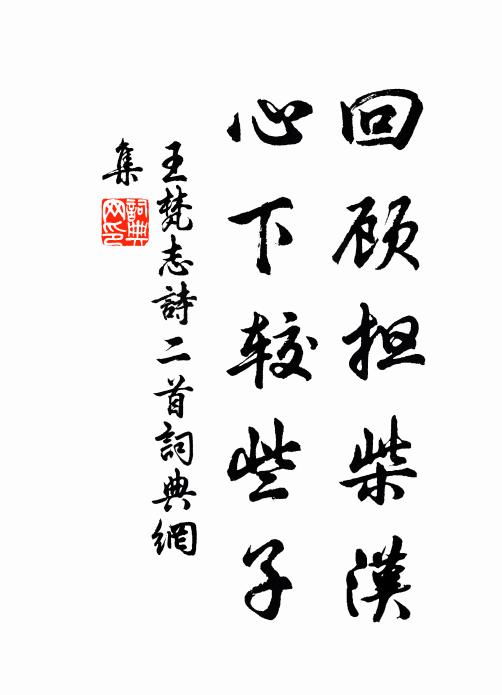 回顾担柴漢
心下较些子
王梵志詩二首詞典網
集
詞典網印